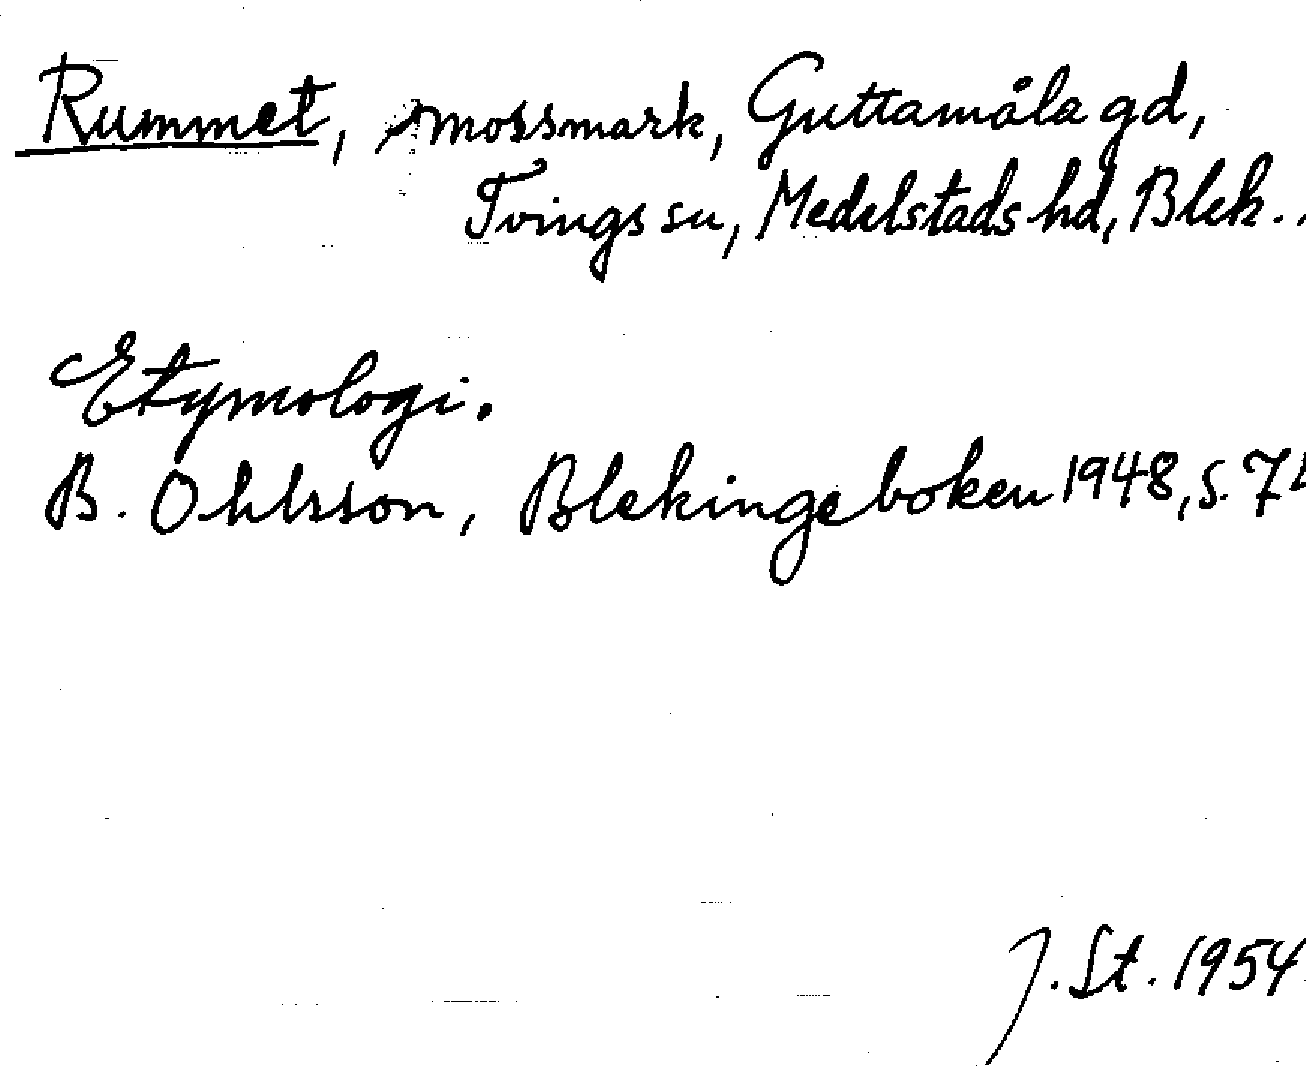 Rummet, mossmark, Guttamåla gd,
Tvings sn, Medelstads hd, Blek..
Etymologi.
B. Ohlsson, Blekingeboken 1948, s.
J. St. 1954